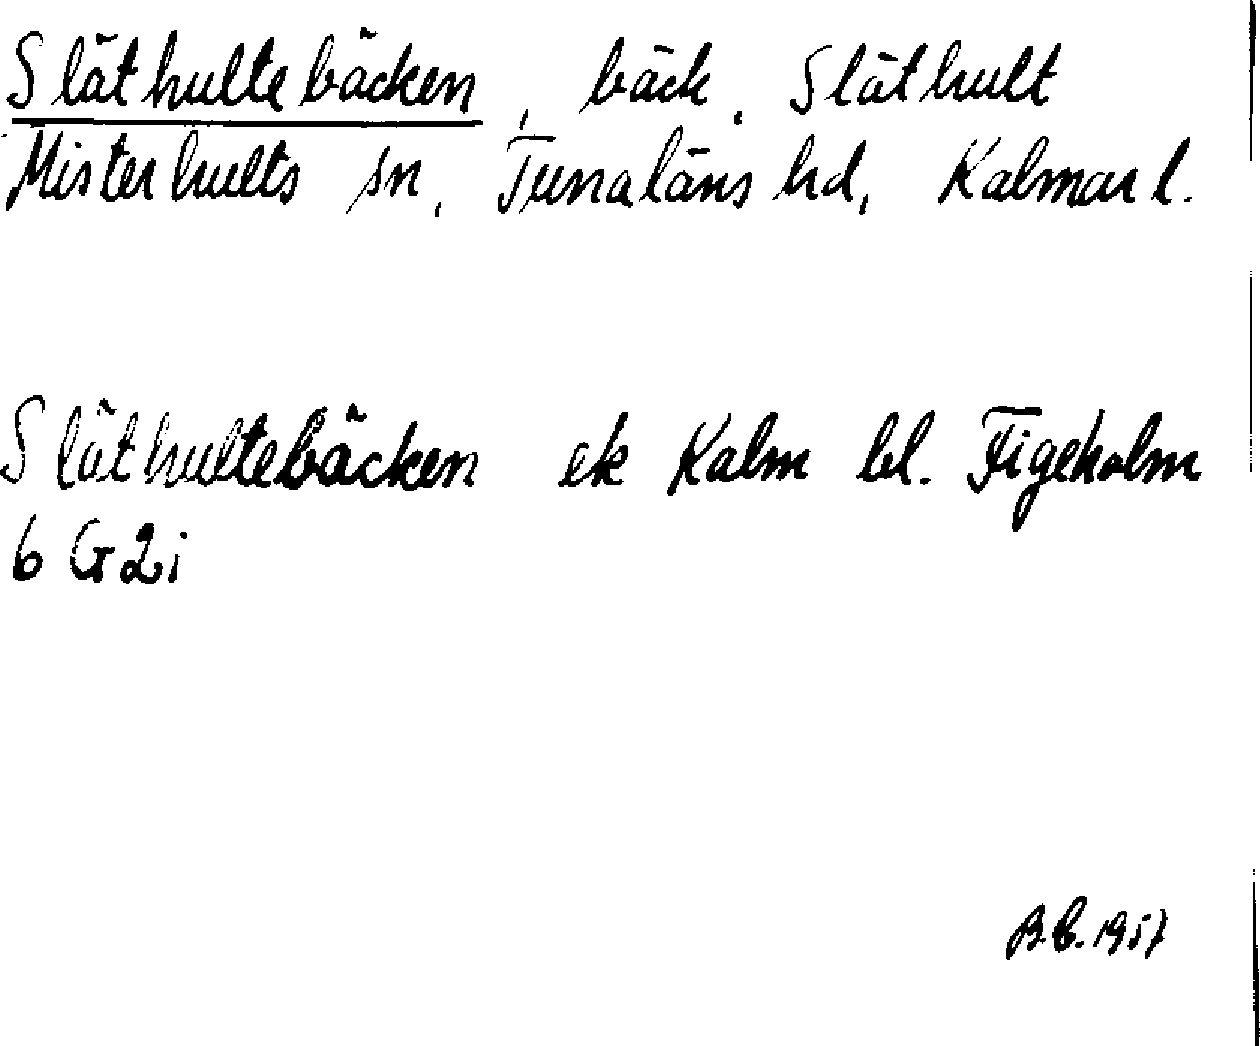 Släthultebäcken, bäck, Släthult
Misterhults sn, Tunaläns hd, Kalmar l.
Släthultebäcken ek Kalm bl. Figeholm
6 G2i
B.E. 1957